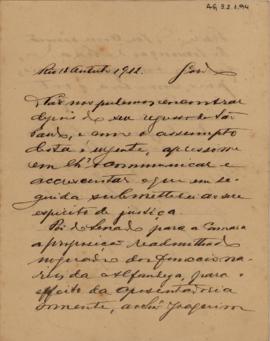 AG, 3.2.1.94
Rio 18 Outubro 1912.
Não nos pudemos encontrar
depois do seu regresso de São
Paulo, e como o assumpto
desta é urgente, apresso-me
em lh'o communicar e
accrescentar o que em se-
guida submetterei ao seu
espirito de justiça.
Foi do Senado para a Camara
a proposição readmittindo
dos funccio-
narios da Alfandega, para o
effeito da aposentadoria
somente, Joaquim